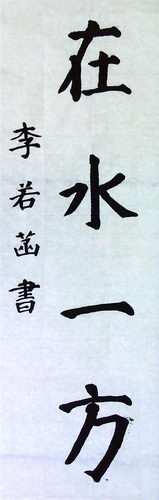 在水一方
李若菡書